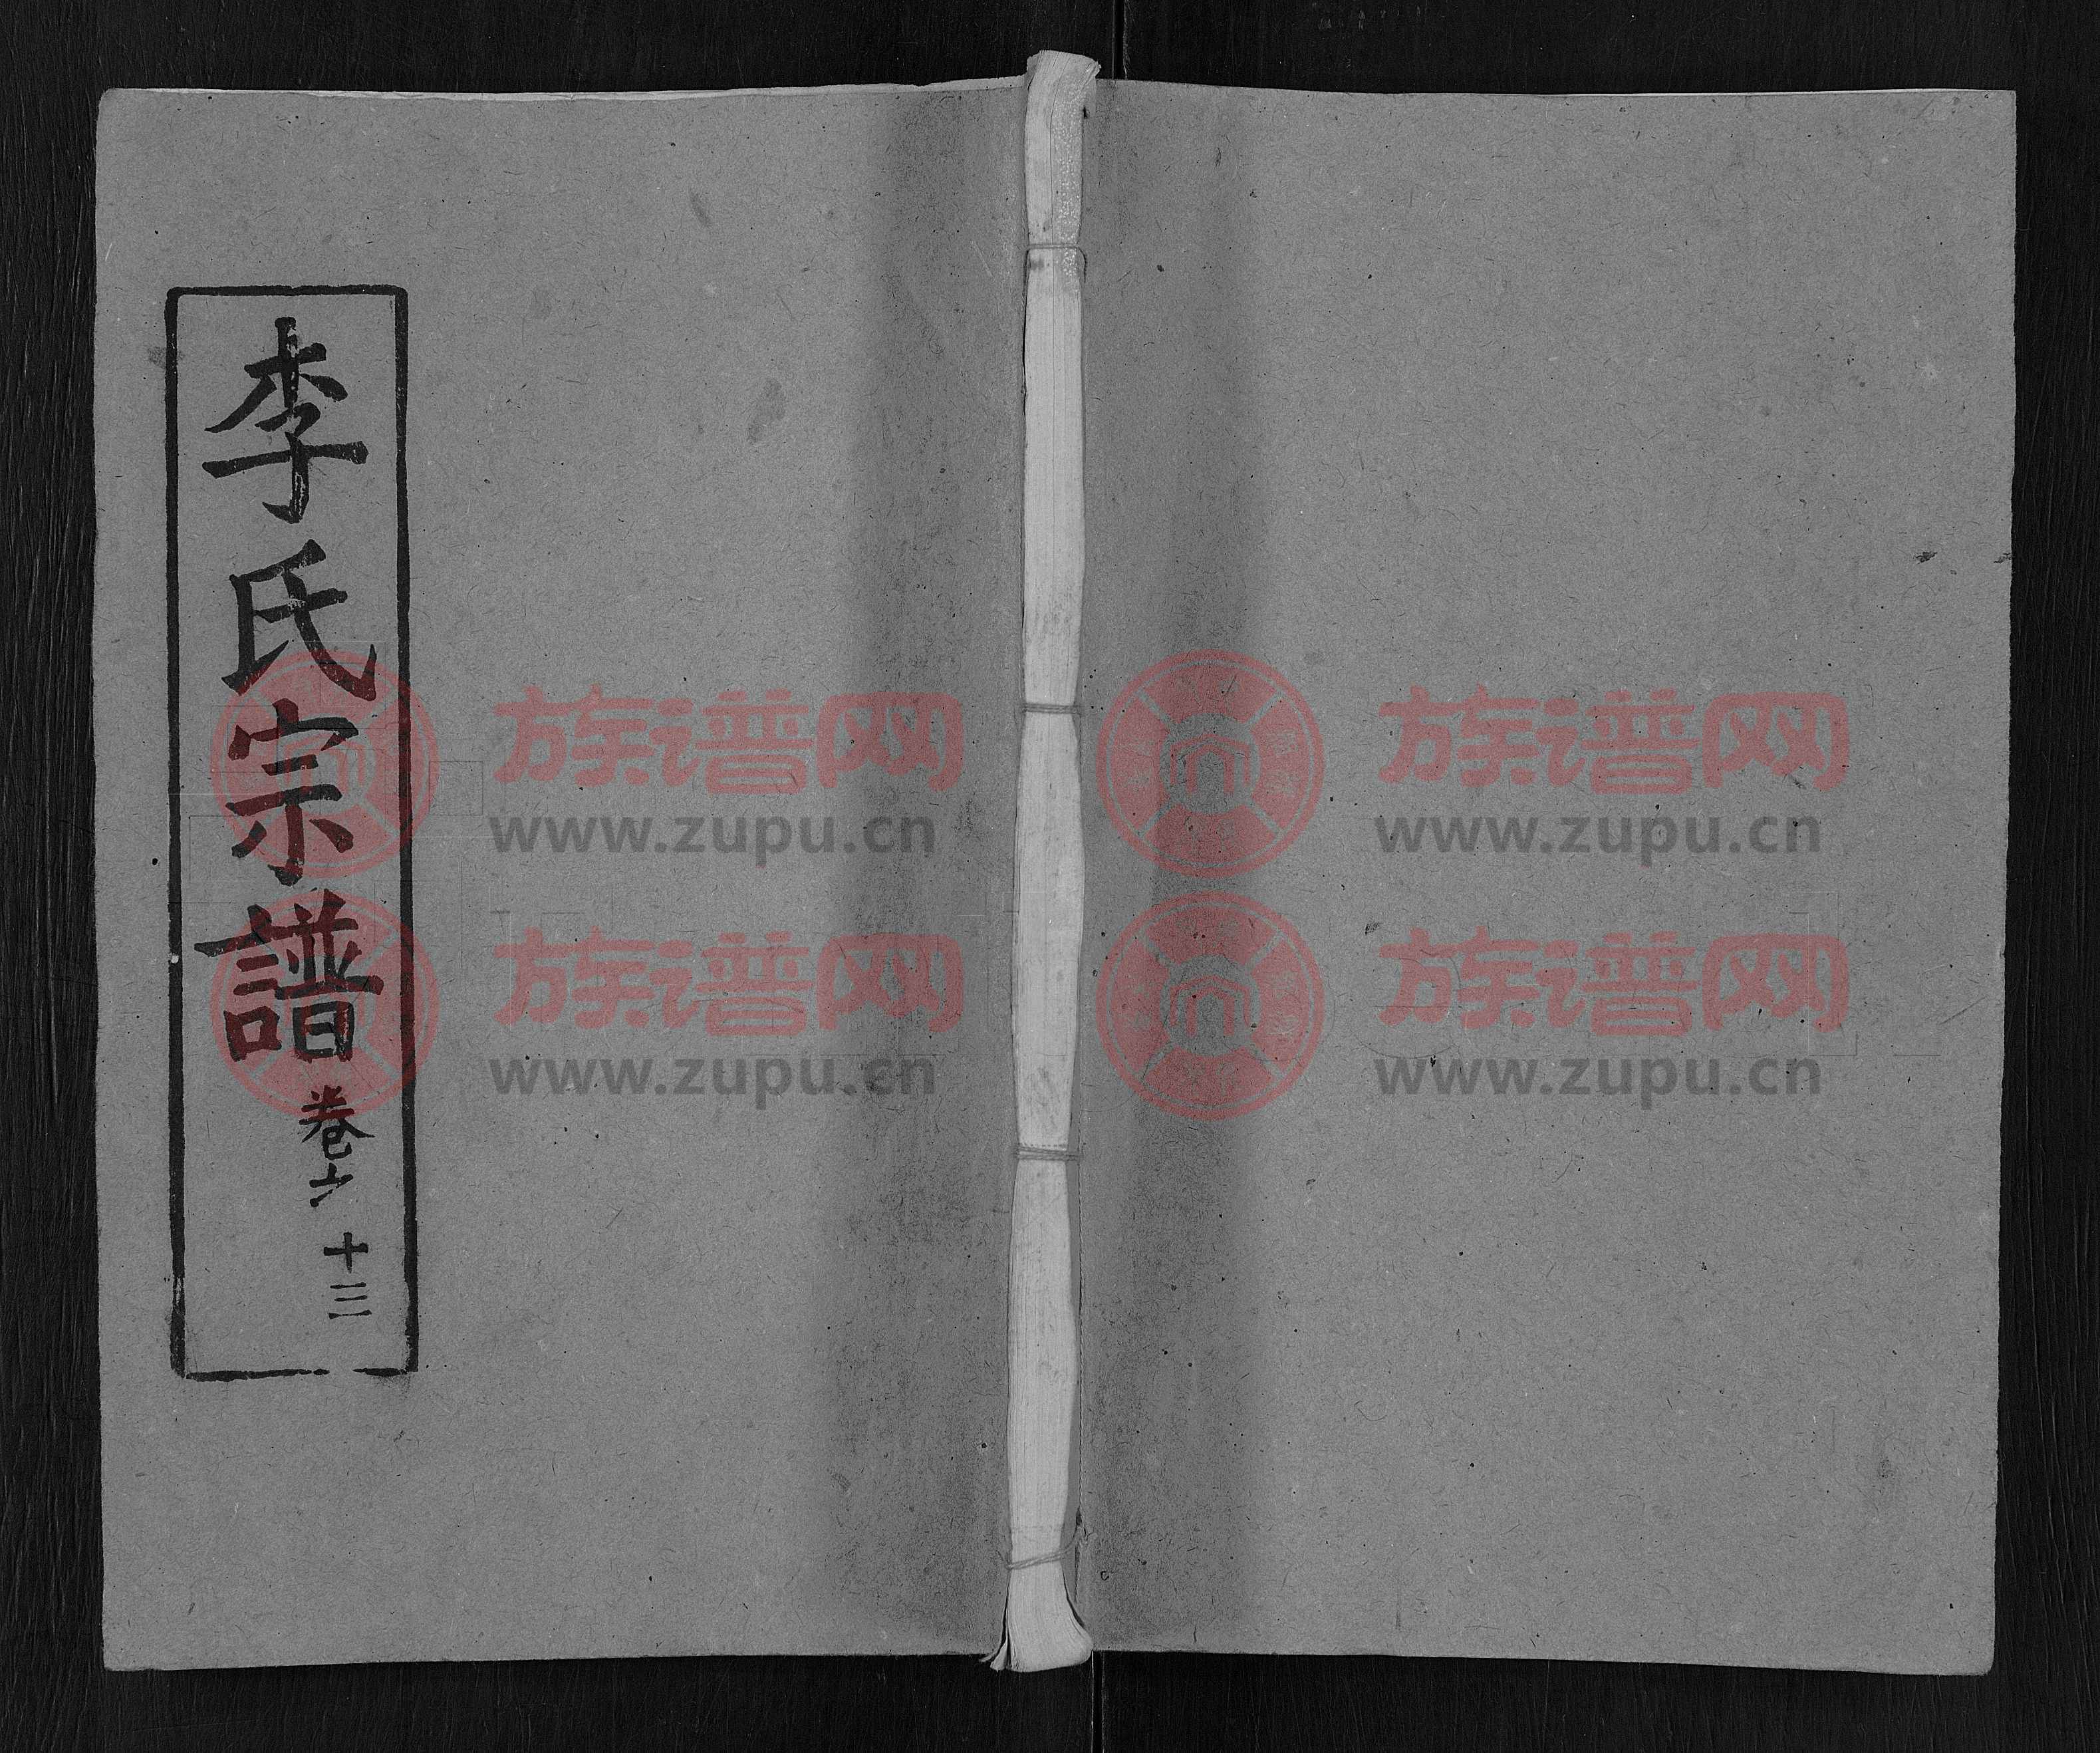 李氏宗譜
卷六
十三
族谱网
www.zupu.cn
族谱网
www.zupu.cn
族谱网
www.zupu.cn
族谱网
www.zupu.cn